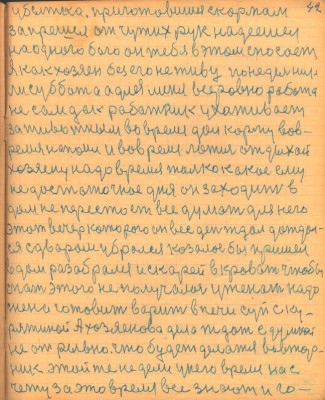 42
убытка, приготовивши скорлам
запрешел от чутих рук надеемся
на одного бого он тебя в этом спосает
я как хозяен без его не живу понедел нил-
ли суббота а для меня все ровно робота
не сам дак работник ухативает
за животным во время дои кормы вов-
ремя напои и вов ремя ложися отдыхай
хозяену надо время только какое ему
не достаточное дня он заходит в
дом не переста все думат для него
этот вечер которого он весь ден ждал дотдал-
ся дваром убрался козалос бы пришел
в дом разабрался и скарей в кровать чтобы
спат этого не получалоя ужинать надо
жена готовит варит в печи суп с ку-
рятиной А хозяенова дела ждат с думкой
не отрывно что будет делать вовтор-
ник этой же недели унего время нас
чету за это время все знают и го-